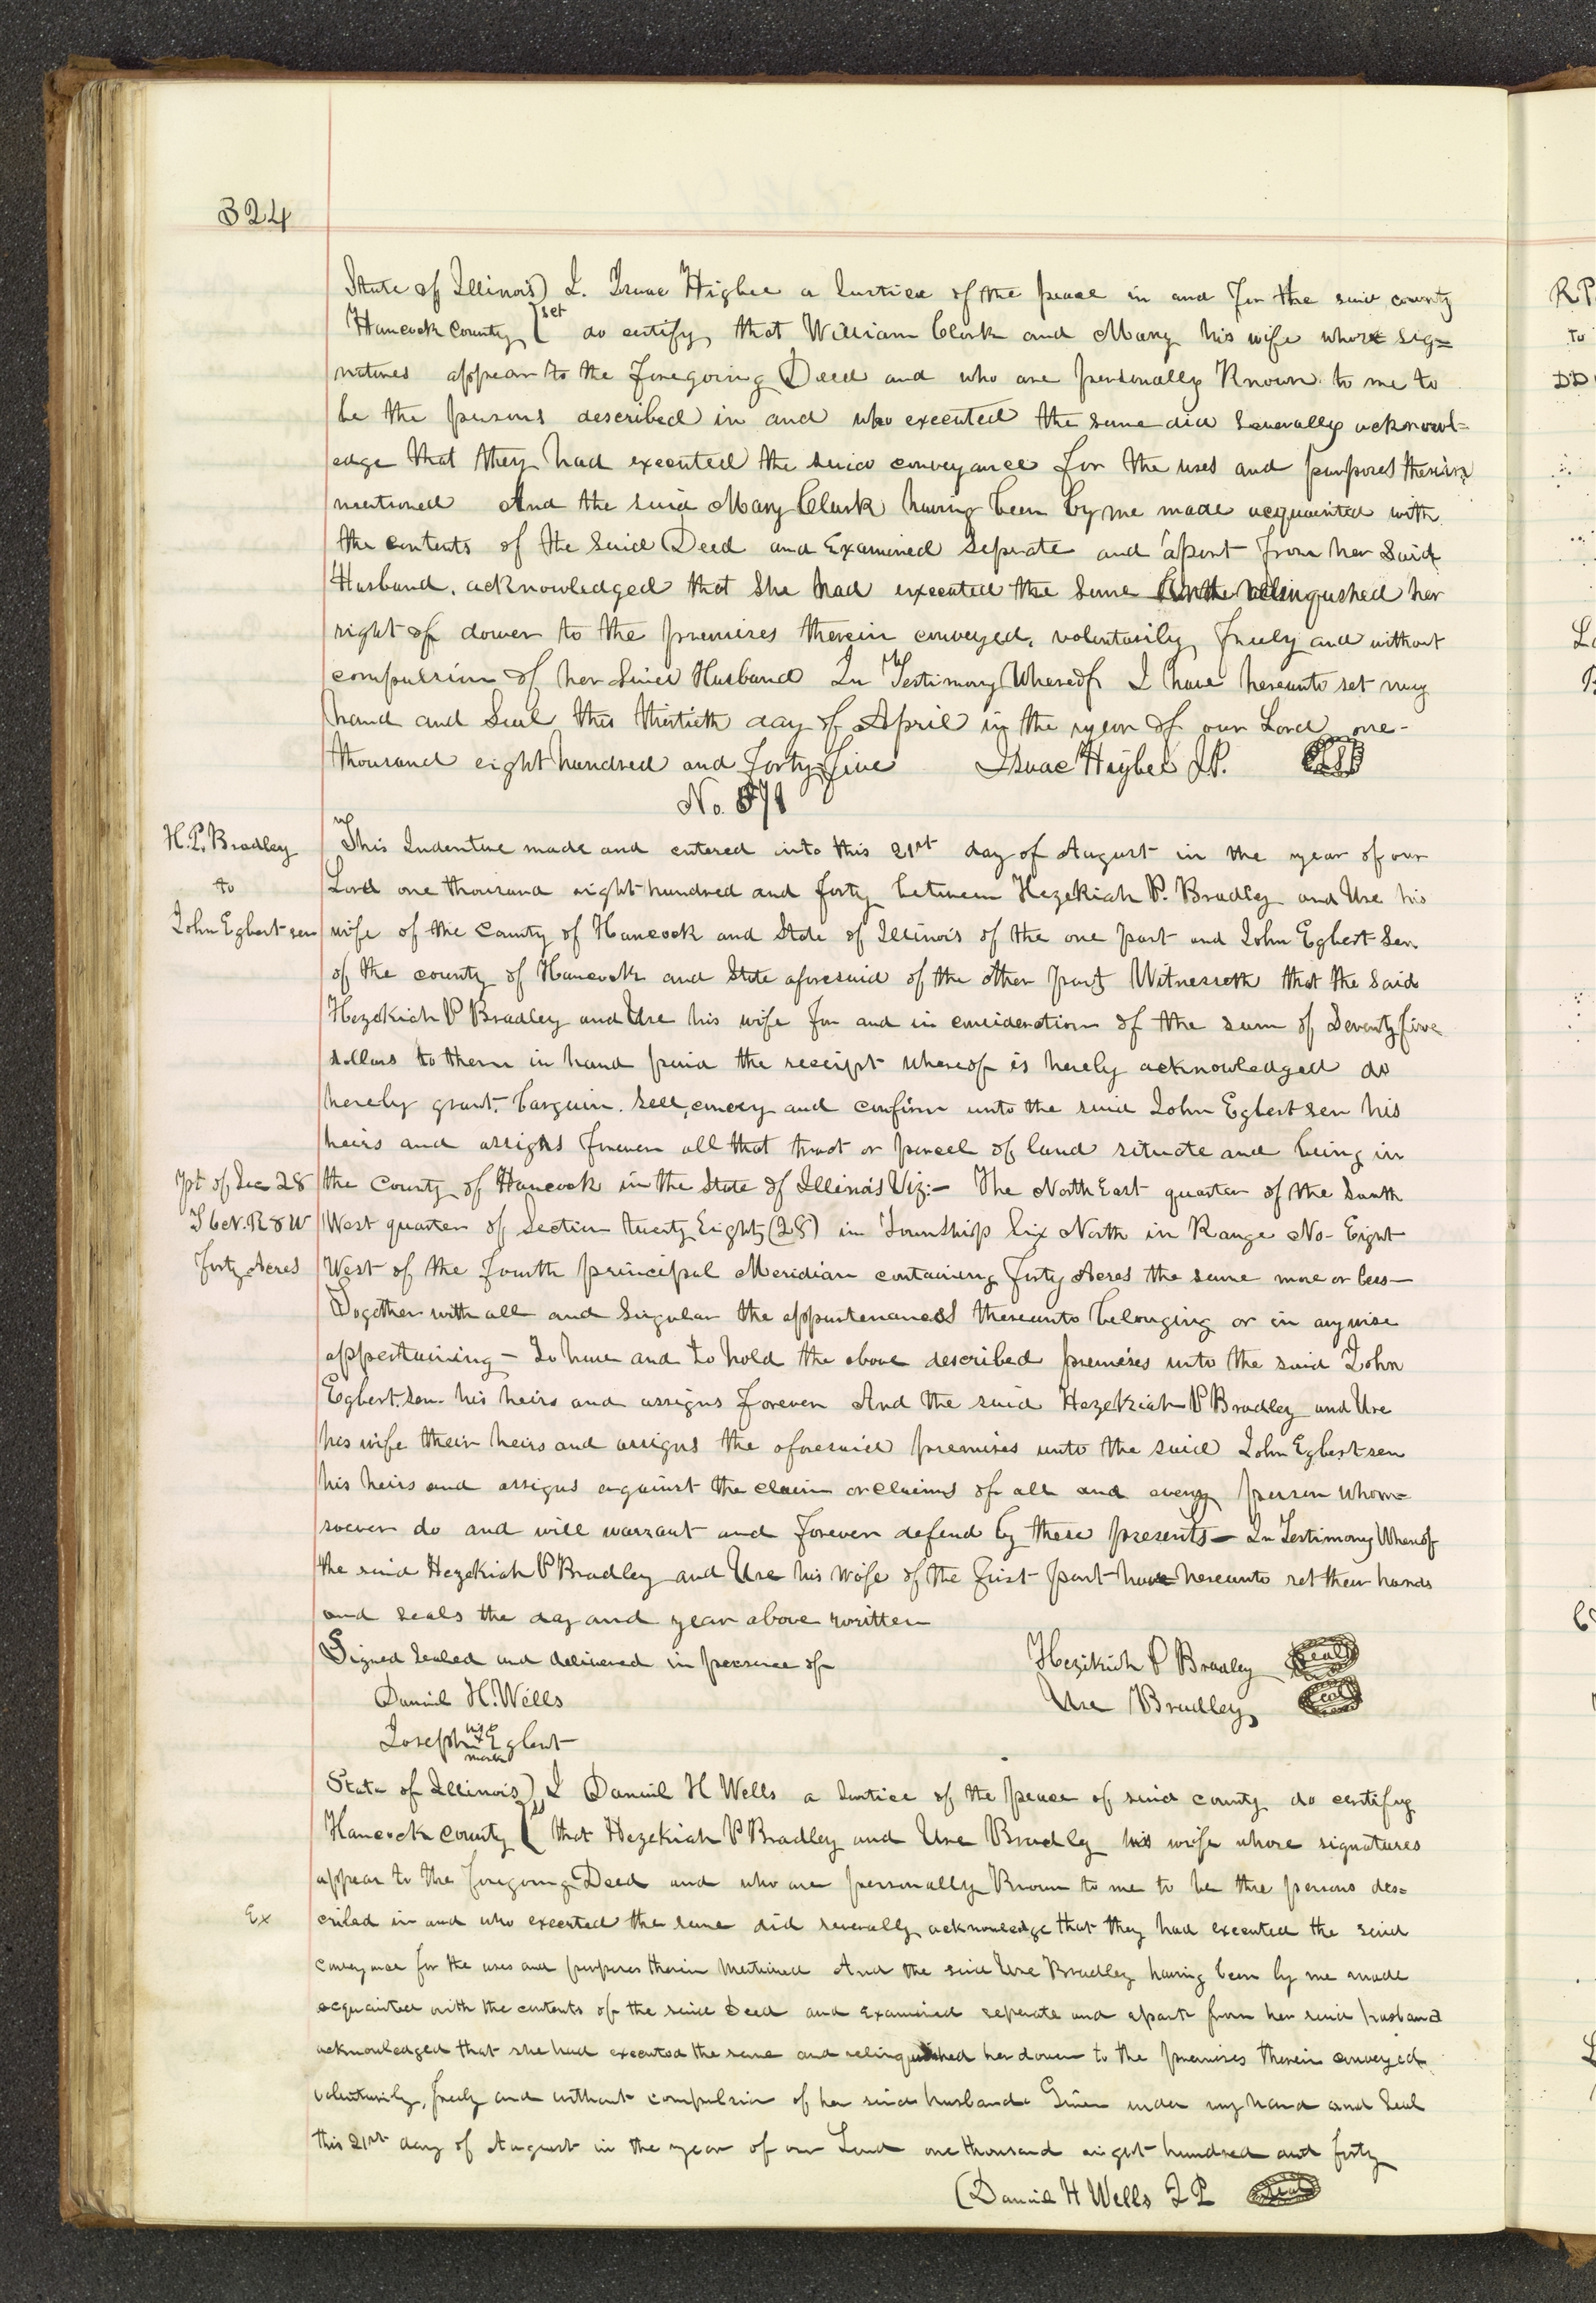 324
State of Illinois) I. Isaac Higbee a Justice of the peace in and for the said county
Hancock County ( sct do certify, that William Clark and Mary his wife whose sig=
natures appear to the foregoing Deed and who are personally Known to me to
be the persons described in and who executed the same did severally acknowl=
edge that they had executed the said conveyance for the uses and purposes therein
mentioned And the said Mary Clark having been by me made acquainted with
the contents of the said Deed and Examined Seprate and apart from her Said
Husband. acknowledged that She had executed the same relinquished her
right of dower to the premises therein conveyed, voluntarily, freely and without
compulsion of her said Husband In Testimony Whereof I have hereunto set my
hand and Seal this thirtieth day of April in the year of our Lord one-
thousand eight hundred and Forty five Isaac Higbee J.P.
No. 871
H. P. Bradley
to
John Egbert sen
This Indenture made and entered into this 21st day of August in the year of our
Lord one thousand eight hundred and forty between Hezekiah P. Bradley and Ure his
wife of the County of Hancock and State of Illinois of the one part and John Egbert Sen.
of the county of Hancock and State aforesaid of the other part Witnesseth that the Said
Hezekiah P Bradley and Ure his wife for and in consideration of the sum of Seventy five
dollars to them in hand paid the receipt whereof is hereby acknowledged do
hereby grant, bargain. sell, convey and confirm unto the said John Egbert sen his
heirs and assigns forever all that tract or parcel of land situate and being in
pt of Sec 28
T 6 N. R 8 W
forty Acres
the County of Hancock in the State of Illinois Viz:- The North East quarter of the South
West quarter of Section twenty Eight (28) in Township Six North in Range No- Eight
West of the fourth principal Meridian containing forty Acres the same more or less-
Together with all and Singular the appurtenances thereunto belonging or in anywise
appertaining - To have and to hold the above described premises unto the said John
Egbert. Sen. his heirs and assigns forever And the said Hezekiah P Bradley and Ure
his wife their heirs and assigns the aforesaid premises unto the said John Egbert sen
his heirs and assigns against the claim or claims of all and every person whom=
soever do and will warrant and forever defend by these presents - In Testimony Whereof
the said Hezekiah P Bradley and Ure his wife of the first part have hereunto set their hands
and seals the day and year above written
Signed Sealed and delivered in presence of Hezikiah P Bradley (Seal)
Daniel H. Wells Ure Bradley (Seal)
Joseph his x mark Egbert
State of Illinois) I Daniel H Wells a Justice of the peace of said county do certify
Hancock County ( that Hezekiah P Bradley and Ure Bradley his wife whose signatures
appear to the foregoing Deed and who are personally Known to me to be the persons des=
Ex
cribed in and who executed the same did severally acknowledge that they had executed the said
conveyance for the uses and purposes therein mentioned And the said Ure Bradley having been by me made
acquainted with the contents of the said Deed and Examined seperate and apart from her said husband
acknowledged that she had executed the same and relinquished her dower to the premises therein conveyed
voluntarily, freely and without compulsion of her said husband Given under my hand and Seal
this 21st day of August in the year of our Lord one thousand eight hundred and forty
Daniel H Wells J P (Seal)
R P
to